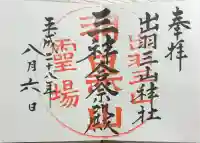 奉拝
出羽三山神社
三神合祭殿
平成二十八年
八月六日
霊場